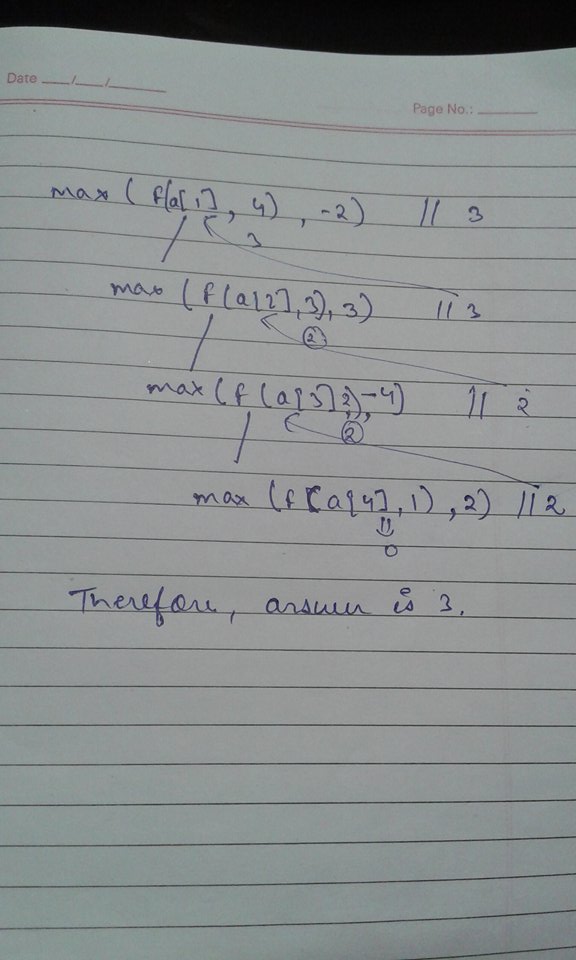 Date ___/___/______
Page No.: ________
max ( f(a[1], 4), -2) // 3
3
max (f(a[2],3), 3) // 3
2
max (f(a[3],2),-4) // 2
2
max (f(a[4],1),2) // 2
0
Therefore, answer is 3.